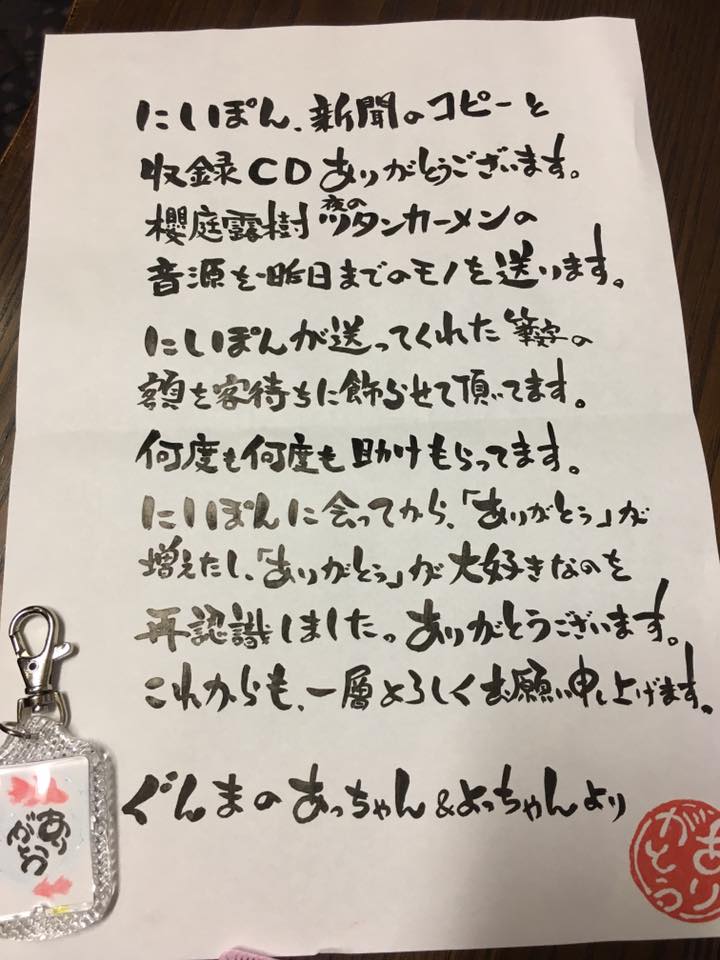 にしぽん、新聞のコピーと
収録CDありがとうございます。
櫻庭露樹 夜のツタンカーメンの
音源を一昨日までのモノを送ります。
にしぽんが送ってくれた筆文字の
額を客待ちに飾らせて頂いてます。
何度も何度も助けもらってます。
にしぽんに会ってから、「ありがとう」が
増えたし、「ありがとう」が大好きなのを
再認識しました。ありがとうございます。
これからも、一層よろしくお願い申し上げます。
ぐんまのあっちゃん&よっちゃんより
ありがとう
ありがとう